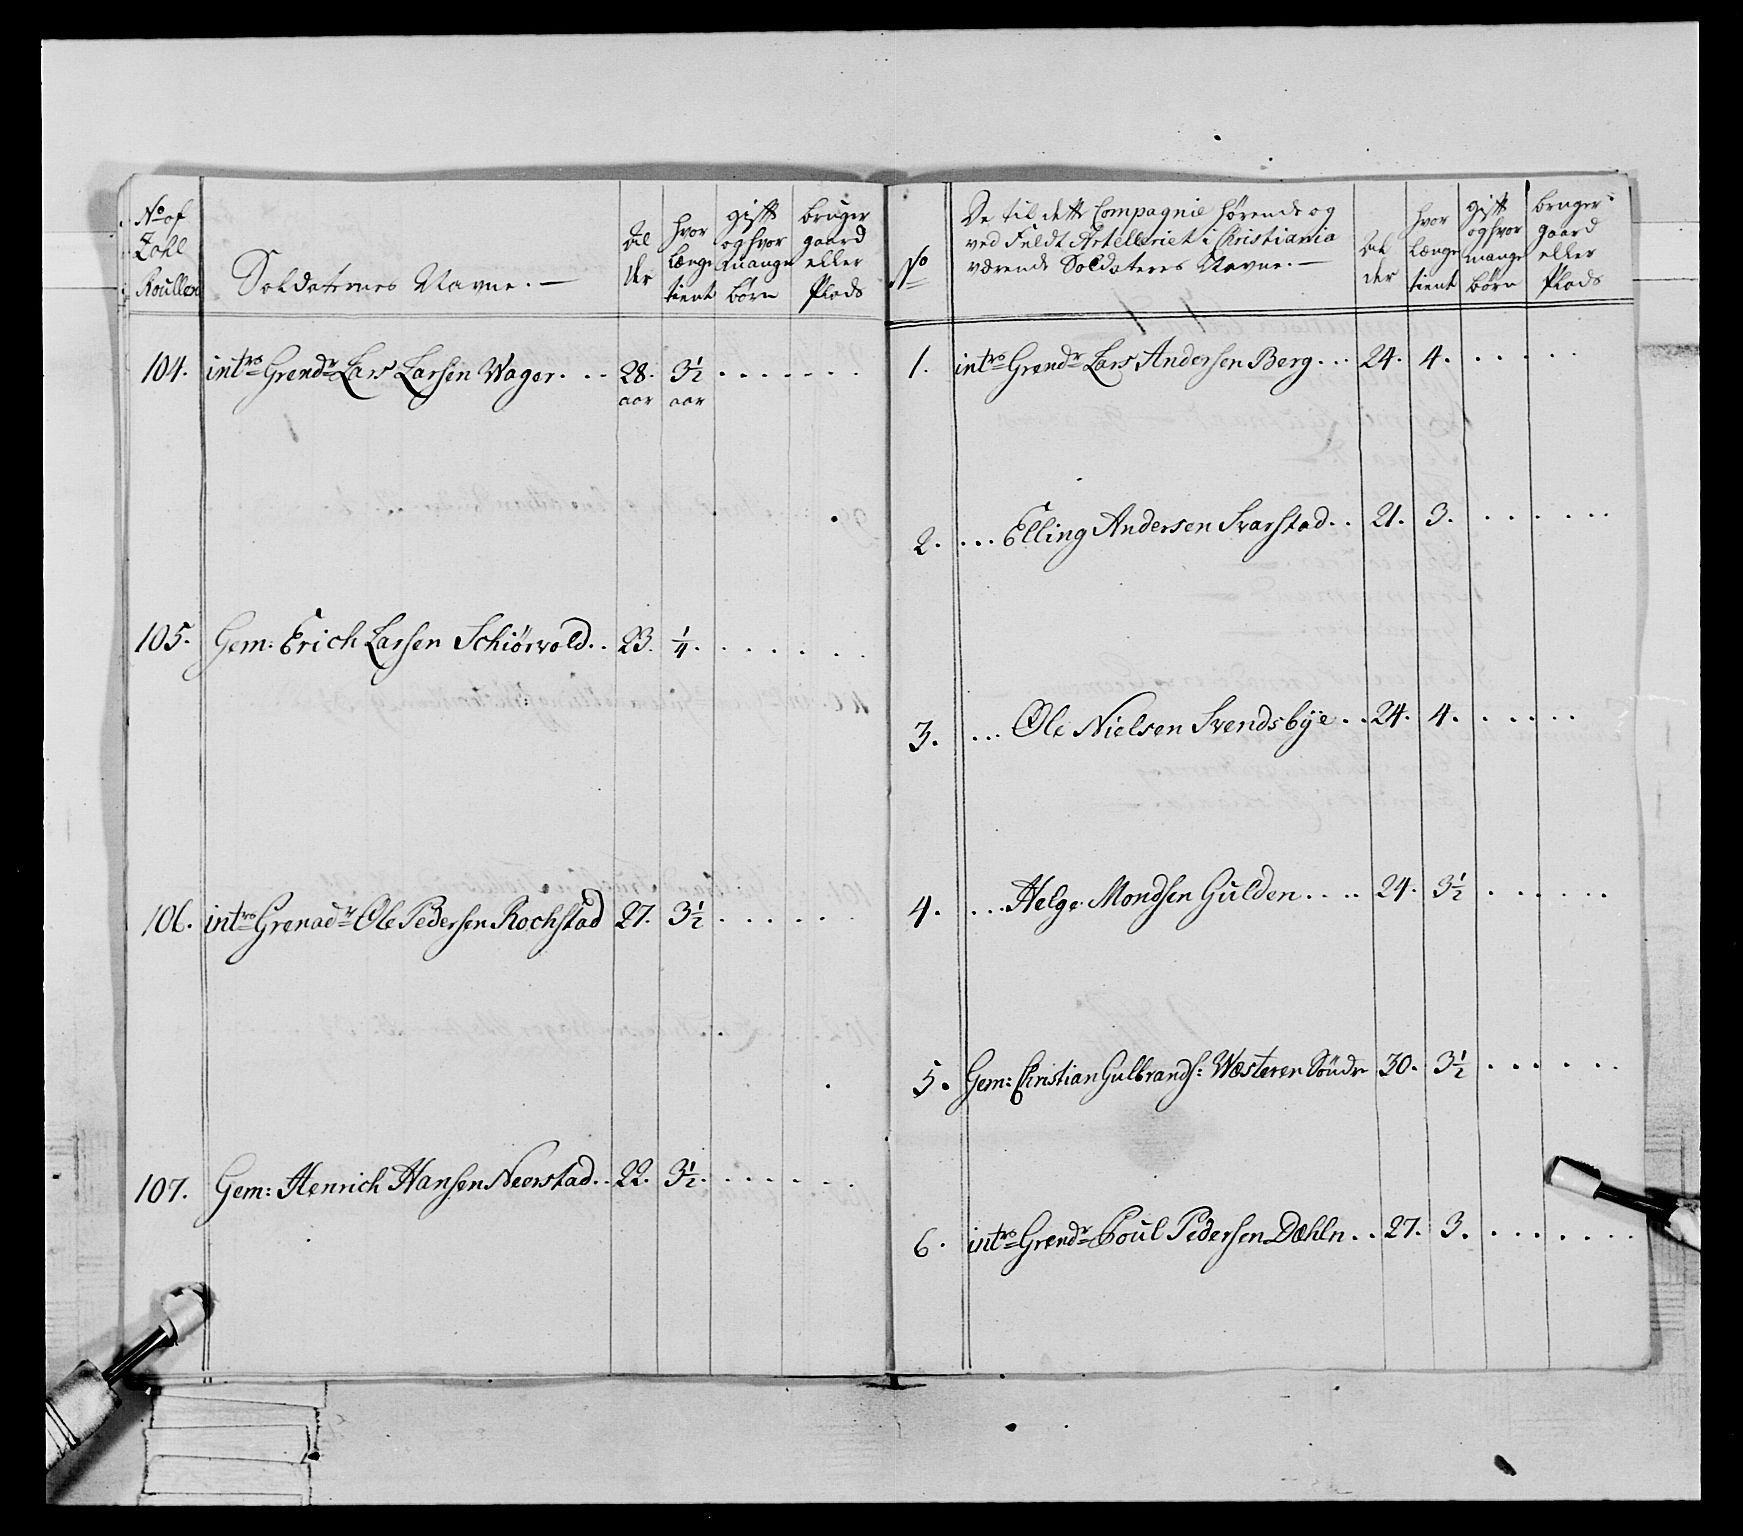 No af Zahl Roullen
Soldaternes Navne. —
Al der
hvor længe tient
gift og hvor mange börn
bruger gaard eller Plads
104. intro Grendr Lars Larsen Wager. . . 28. aar 3½ aar . . . . . . .
105. Gem: Erich Larsen Schiörvold. . 23. ¼. . . . . . .
106. intro Grenadr Ole Pedersen Rochstad 27. 3½ . . . . . .
107. Gem: Henrich Hansen Neerstad. . 22. 3½. . . . . . .
No
De til dette Compagnie hörende og
ved Feldt Artelleriet i Christiania
værende Soldaters Navne. —
Al der
hvor længe tient
gift og hvor mange börn
bruger gaard eller Plads
1. intro Grendr Lars Andersen Berg . . . 24. 4. . . . . .
2. . . . Elling Andersen Svarstad. . 21. 3. . . . . . .
3. . . . Ole Nielsen Svendsbÿe . . 24. 4. . . . . .
4. . . . Helge Mondsen Gulden . . . . 24. 3½ . . . . . .
5. Gem: Christian Gulbrands: Wæsteren Söndr 30. 3½ . . . . . .
6. intro Grendr Poul Pedersen Dæhln . . 27. 3. . . . . . .